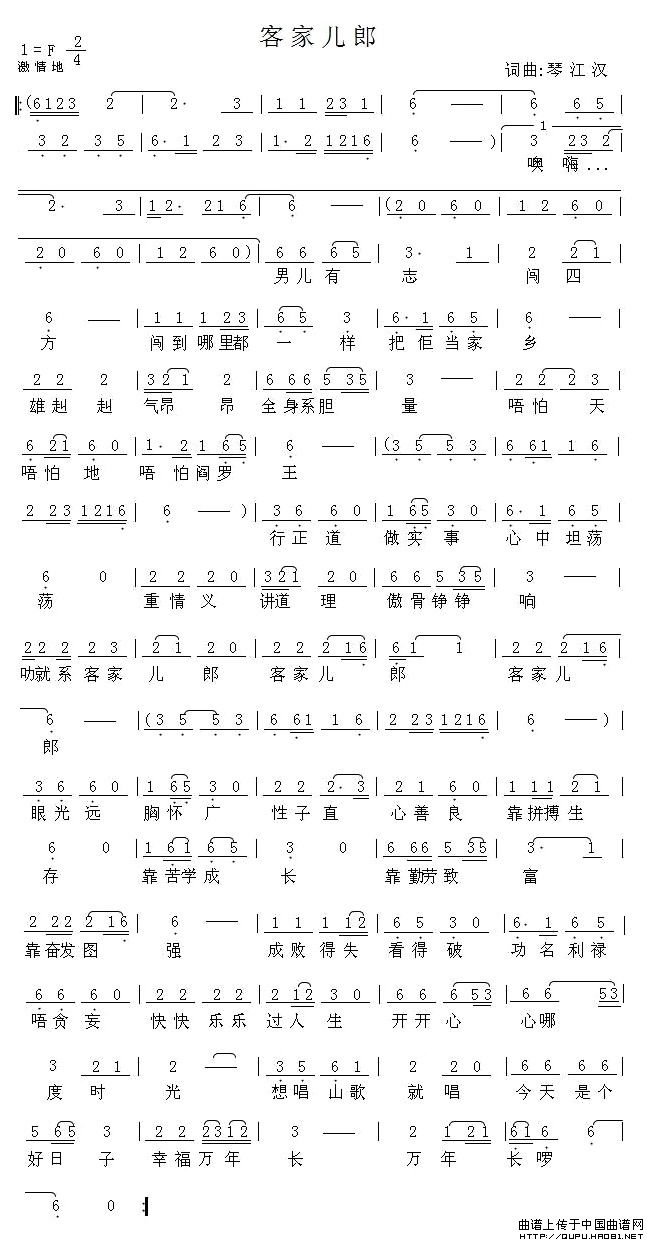 客家儿郎
1=F 2/4
激情地
词曲:琴江汉
(6123 2 | 2· 3 | 1 1 23 1 | 6 — | 6 6 5 |
3 2 3 5 | 6· 1 2 3 | 1· 2 1216 | 6 — ) | 3 23 2 |
噢 嗨...
2· 3 | 12· 21 6 | 6 — | (2 0 6 0 | 1 2 6 0 |
2 0 6 0 | 1 2 6 0) | 6 6 6 5 | 3· 1 | 2 2 1 |
男儿有 志 闯四
6 — | 1 1 1 23 | 6 5 3 | 6· 1 6 5 | 6 — |
方 闯到哪里都 一样 把佢当家 乡
2 2 2 | 32 1 2 | 6 66 5 35 | 2 — | 2 2 2 3 |
雄赳赳 气昂昂 全身系胆 量 唔怕天
6 21 6 0 | 1· 2 1 6 5 | 6 — | (3 5 5 3 | 6 61 1 6 |
唔怕地 唔怕阎罗 王
2 23 1216 | 6 — ) | 3 6 6 0 | 1 65 3 0 | 6· 1 6 5 |
行正道 做实事 心中坦荡
6 0 | 2 2 2 0 | 32 1 2 0 | 6 6 5 3 5 | 3 — |
荡 重情义 讲道理 傲骨铮铮 响
22 2 2 3 | 2 1 2 0 | 2 2 2 16 | 61 1 | 2 2 2 16 |
叻就系客家 儿郎 客家儿 郎 客家儿
6 — | (3 5 5 3 | 6 61 1 6 | 2 23 1216 | 6 — ) |
郎
3 6 6 0 | 1 65 3 0 | 2 2 2· 3 | 2 1 6 0 | 1 11 2 1 |
眼光远 胸怀广 性子直 心善良 靠拼搏生
6 0 | 1 61 6 5 | 3 0 | 6 66 5 5 | 3· 1 |
存 靠苦学成 长 靠勤劳致 富
2 22 2 16 | 6 — | 1 1 1 12 | 6 5 3 0 | 6· 1 6 5 |
靠奋发图 强 成败得失 看得破 功名利禄
6 6 6 0 | 2 2 2 2 | 2 12 3 0 | 6 6 6 53 | 6 6 53 |
唔贪妄 快快乐乐 过人生 开开心 心哪
3 2 1 | 2 — | 3 5 6 1 | 2 2 0 | 6 6 6 1 |
度时 光 想唱山歌 就唱 今天是个
5 65 3 | 2 2 2312 | 3 — | 2 1 21 | 61 6 6 |
好日子 幸福万年 长 万年 长啰
6 0 :|
曲谱上传于中国曲谱网
HTTP://QUPU.HAO81.NET